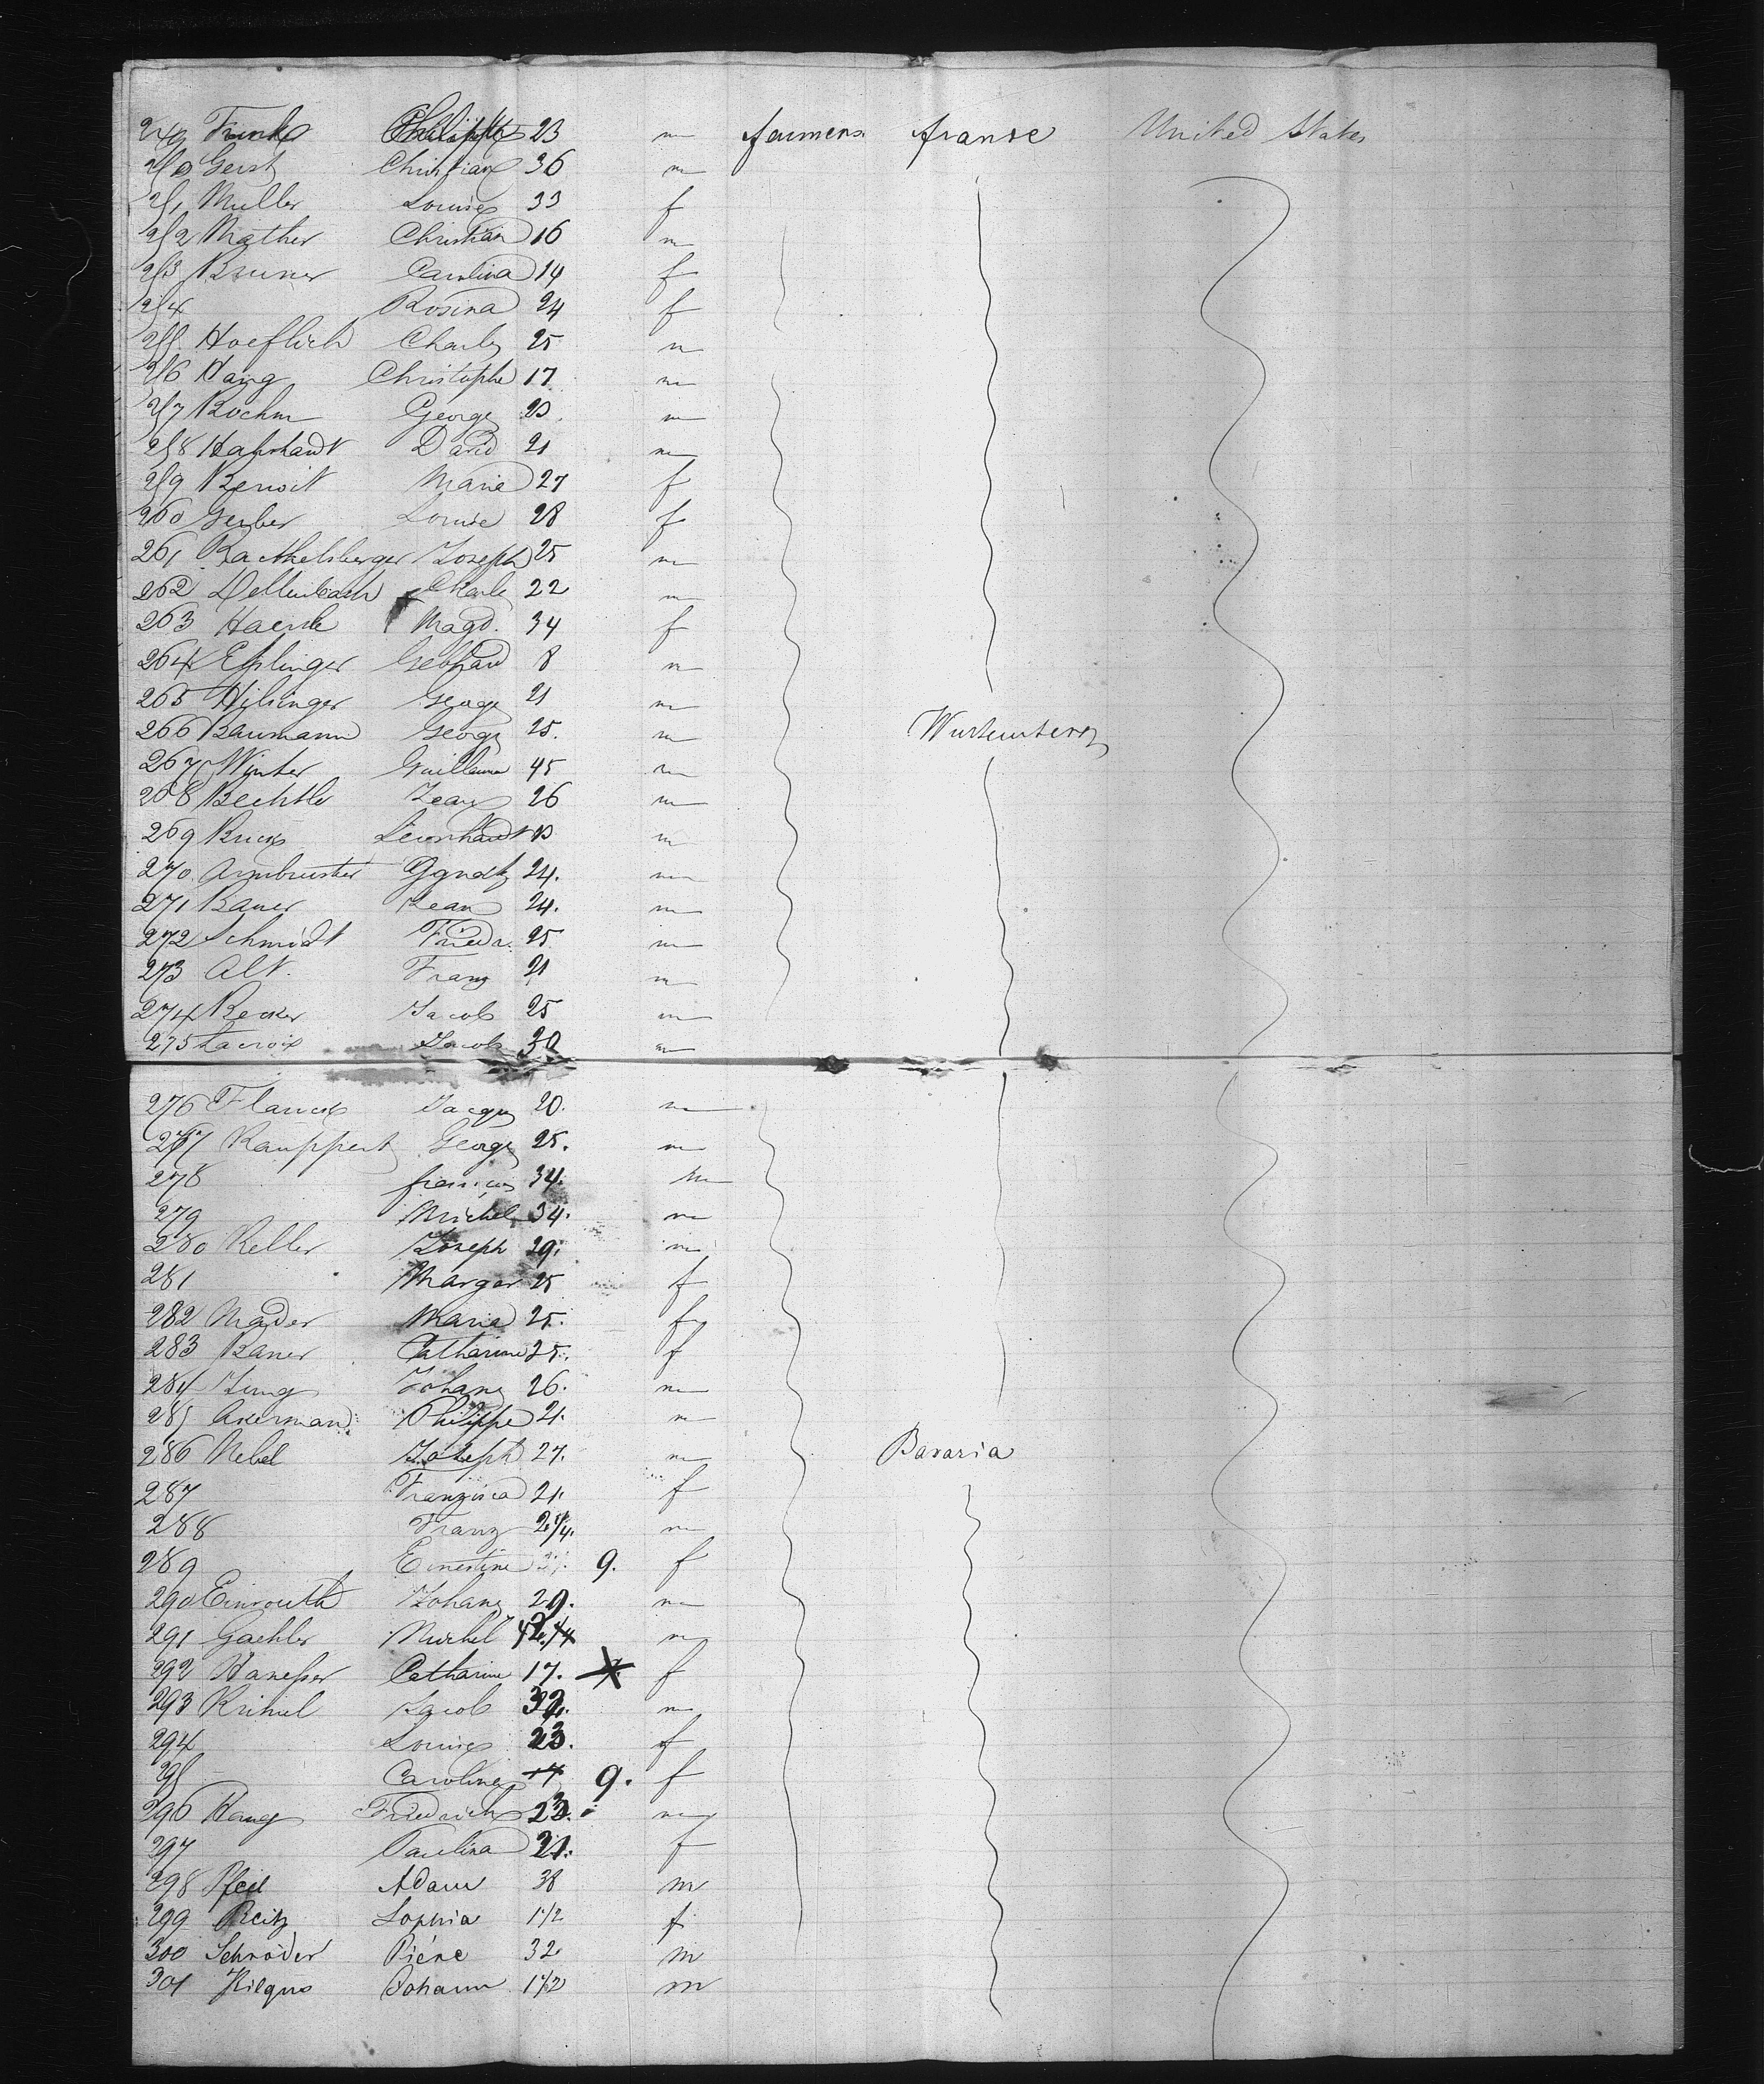 249 Funk Philippe 23 m farmers franse United States
250 Gerst Christian 36 m
251 Muller Louise 33 f
252 Mather Christian 16 m
253 Bruner Carolina 14 f
254 Rosina 24 f
255 Hoeflich Charles 25 m
256 Haing Christophe 17 m
257 Boehm George 23 m
258 David 21 m
259 Benoit Marie 27 f
260 Gerber Louise 28 f
261 Joseph 25 m
262 Dellenbach Charles 22 m
263 Magd. 34 f
264 Eslinger Gebhard 8 m
265 George 21 m
266 Baumann George 25. m Wurtemberg
267 Winter Guillaume 45 m
268 Bechtle Jean 26 m
269 Leonhardt m
270 Armbruster 24. m
271 Bauer Jean 24. m
272 Schmidt Friedr. 25 m
273 Alt. Franz 21 m
274 Becker Jacob 25 m
275 Lacroix Jacob 30 m
276 Jacques 20. m
277 Rauppert George 25. m
278 françois 34. m
279 Michel 34. m
280 Keller Joseph 29. m
281 Margar 25 f
282 Mader Marie 25. f
283 Bauer Catharine 25. f
284 Jung Johann 26. m
285 Akermann Philippe 21. m
286 Nebel Joseph 27. m Bavaria
287 Franzisca 21. f
288 Franz m
289 Ernestine 9. f
290 Johann 29. m
291 Gaehler Michel m
292 Catharine 17. f
293 Jacob 32. m
294 Louise 23. f
295 Caroline 9. f
296 Friedrich 23. m
297 Paulina 21. f
298 Pfeil Adam 38 m
299 Reitz Sophia 1 1/2 f
300 Schröder Piére 32 m
301 Hilgus Johann 1 1/2 m